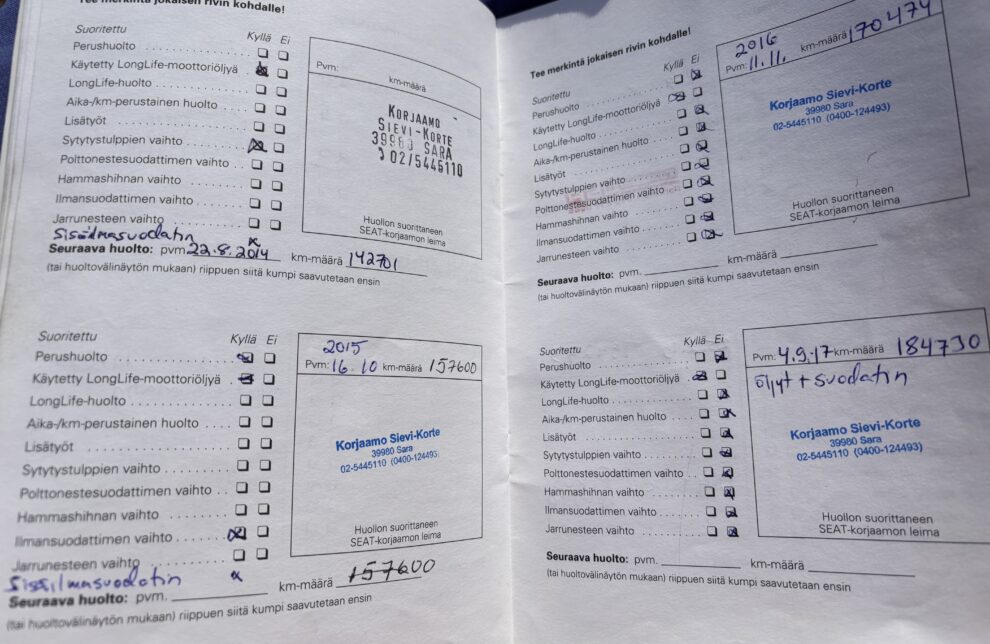 Tee merkintä jokaisen rivin kohdalle!
Suoritettu Kyllä Ei
Perushuolto
Käytetty LongLife-moottoriöljyä
LongLife-huolto
Aika-/km-perustainen huolto
Lisätyöt
Sytytystulppien vaihto
Polttonestesuodattimen vaihto
Hammashihnan vaihto
Ilmansuodattimen vaihto
Jarrunesteen vaihto
Sisäilmasuodatin x
Seuraava huolto: pvm 22.8.2014 km-määrä 142701
(tai huoltovälinäytön mukaan) riippuen siitä kumpi saavutetaan ensin
Pvm: km-määrä
KORJAAMO
SIEVI-KORTE
39980 SARA
02/5445110
Huollon suorittaneen
SEAT-korjaamon leima
Suoritettu Kyllä Ei
Perushuolto
Käytetty LongLife-moottoriöljyä
LongLife-huolto
Aika-/km-perustainen huolto
Lisätyöt
Sytytystulppien vaihto
Polttonestesuodattimen vaihto
Hammashihnan vaihto
Ilmansuodattimen vaihto
Jarrunesteen vaihto
Sisäilmasuodatin x
Seuraava huolto: pvm. km-määrä 157600
(tai huoltovälinäytön mukaan) riippuen siitä kumpi saavutetaan ensin
2015
Pvm: 16.10 km-määrä 157600
Korjaamo Sievi-Korte
39980 Sara
02-5445110 (0400-124493)
Huollon suorittaneen
SEAT-korjaamon leima
Tee merkintä jokaisen rivin kohdalle!
Suoritettu Kyllä Ei
Perushuolto
Käytetty LongLife-moottoriöljyä
LongLife-huolto
Aika-/km-perustainen huolto
Lisätyöt
Sytytystulppien vaihto
Polttonestesuodattimen vaihto
Hammashihnan vaihto
Ilmansuodattimen vaihto
Jarrunesteen vaihto
Seuraava huolto: pvm. km-määrä
(tai huoltovälinäytön mukaan) riippuen siitä kumpi saavutetaan ensin
2016
Pvm: 11.11. km-määrä 170474
Korjaamo Sievi-Korte
39980 Sara
02-5445110 (0400-124493)
Huollon suorittaneen
SEAT-korjaamon leima
Suoritettu Kyllä Ei
Perushuolto
Käytetty LongLife-moottoriöljyä
LongLife-huolto
Aika-/km-perustainen huolto
Lisätyöt
Sytytystulppien vaihto
Polttonestesuodattimen vaihto
Hammashihnan vaihto
Ilmansuodattimen vaihto
Jarrunesteen vaihto
Seuraava huolto: pvm. km-määrä
(tai huoltovälinäytön mukaan) riippuen siitä kumpi saavutetaan ensin
Pvm: 4.9.17 km-määrä 184730
öljyt + suodatin
Korjaamo Sievi-Korte
39980 Sara
02-5445110 (0400-124493)
Huollon suorittaneen
SEAT-korjaamon leima